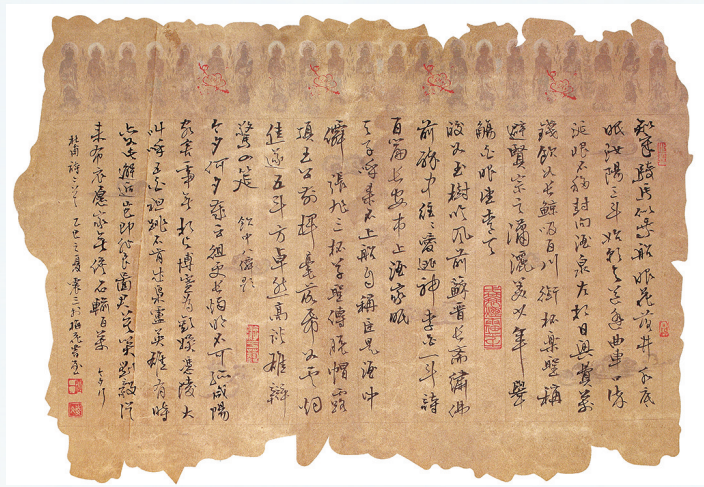 知章騎馬似乘船眼花落井水底
眠汝陽三斗始朝天道逢曲車口流
涎恨不移封向酒泉左相日興費萬
錢飲如長鯨吸百川銜杯樂聖稱
避賢宗之瀟灑美少年舉
觴白眼望青天
皎如玉樹臨風前蘇晉長齋繡佛
前醉中往往愛逃禪李白一斗詩
百篇長安市上酒家眠
天子呼來不上船自稱臣是酒中
僊張旭三杯草聖傳脫帽露
頂王公前揮毫落紙如雲煙
焦遂五斗方卓然高談雄辯
驚四筵 飲中八僊歌
今夕何夕歲云徂更長燭明不可孤咸陽
客舍事無相與博塞為歡娛馮陵大
叫呼五白袒跣不肯成梟盧英雄有時
亦如此邂逅豈即非良圖君莫笑劉毅從
來布衣願家無儋石輸百萬 今夕行
杜甫詩二首 乙巳之夏